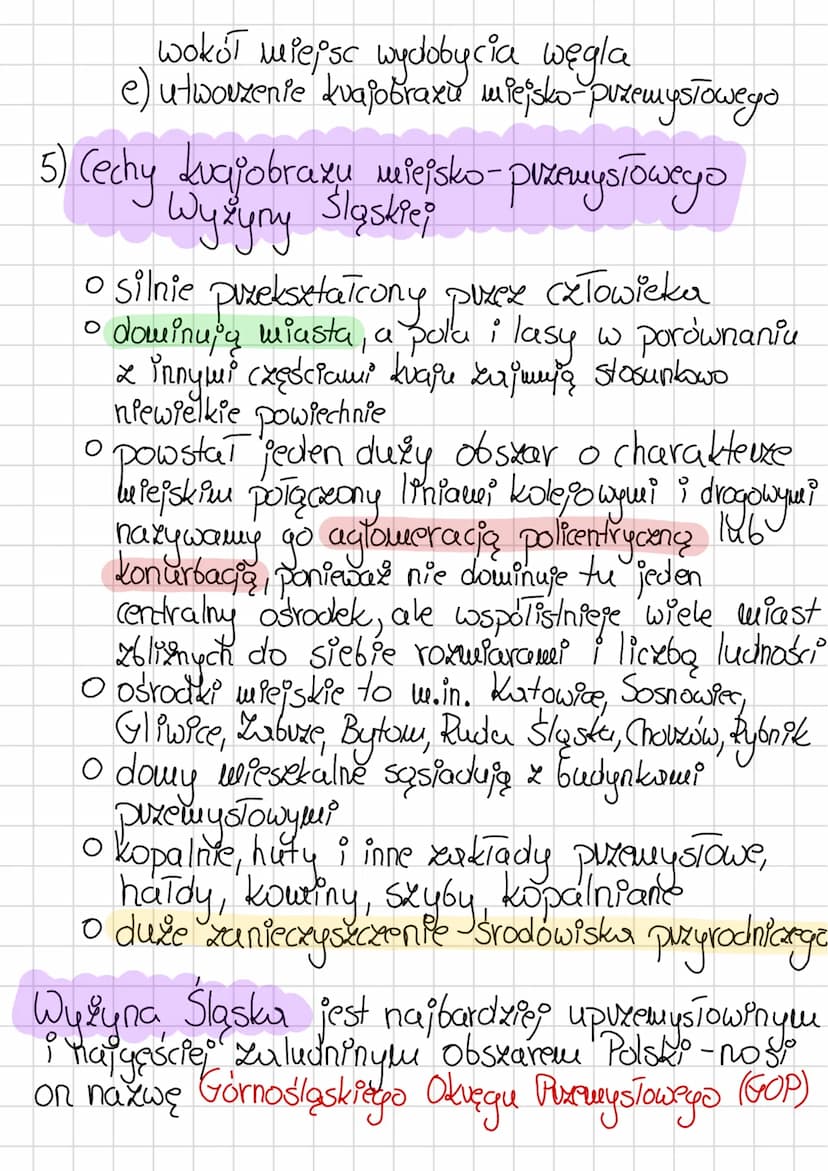 wokół miejsc wydobycia węgla
e) utworzenie krajobrazu miejsko-przemysłowego
5) Cechy krajobrazu miejsko-przemysłowego
Wyżyny Śląskiej
o silnie przekształcony przez człowieka
o dominują miasta, a pola i lasy w porównaniu
z innymi częściami kraju zajmują stosunkowo
niewielkie powiechnie
o powstał jeden duży obszar o charakterze
miejskim połączony liniami kolejowymi i drogowymi
nazywamy go aglomeracją policentryczną lub
konurbacją, ponieważ nie dominuje tu jeden
centralny ośrodek, ale współistnieje wiele miast
zbliżnych do siebie rozmiarami i liczbą ludności
o ośrodki miejskie to m.in. Katowice, Sosnowiec,
Gliwice, Zabrze, Bytom, Ruda Śląska, Chorzów, Rybnik
o domy mieszkalne sąsiadują z budynkami
przemysłowymi
o kopalnie, huty i inne zakłady przemysłowe,
hałdy, kominy, szyby kopalniane
o duże zanieczyszczenie środowiska przyrodniczego
Wyżyna Śląska jest najbardziej uprzemysłowinym
i najgęściej zaludninym obszarem Polski - nosi
on nazwę Górnośląskiego Okręgu Przemysłowego (GOP)